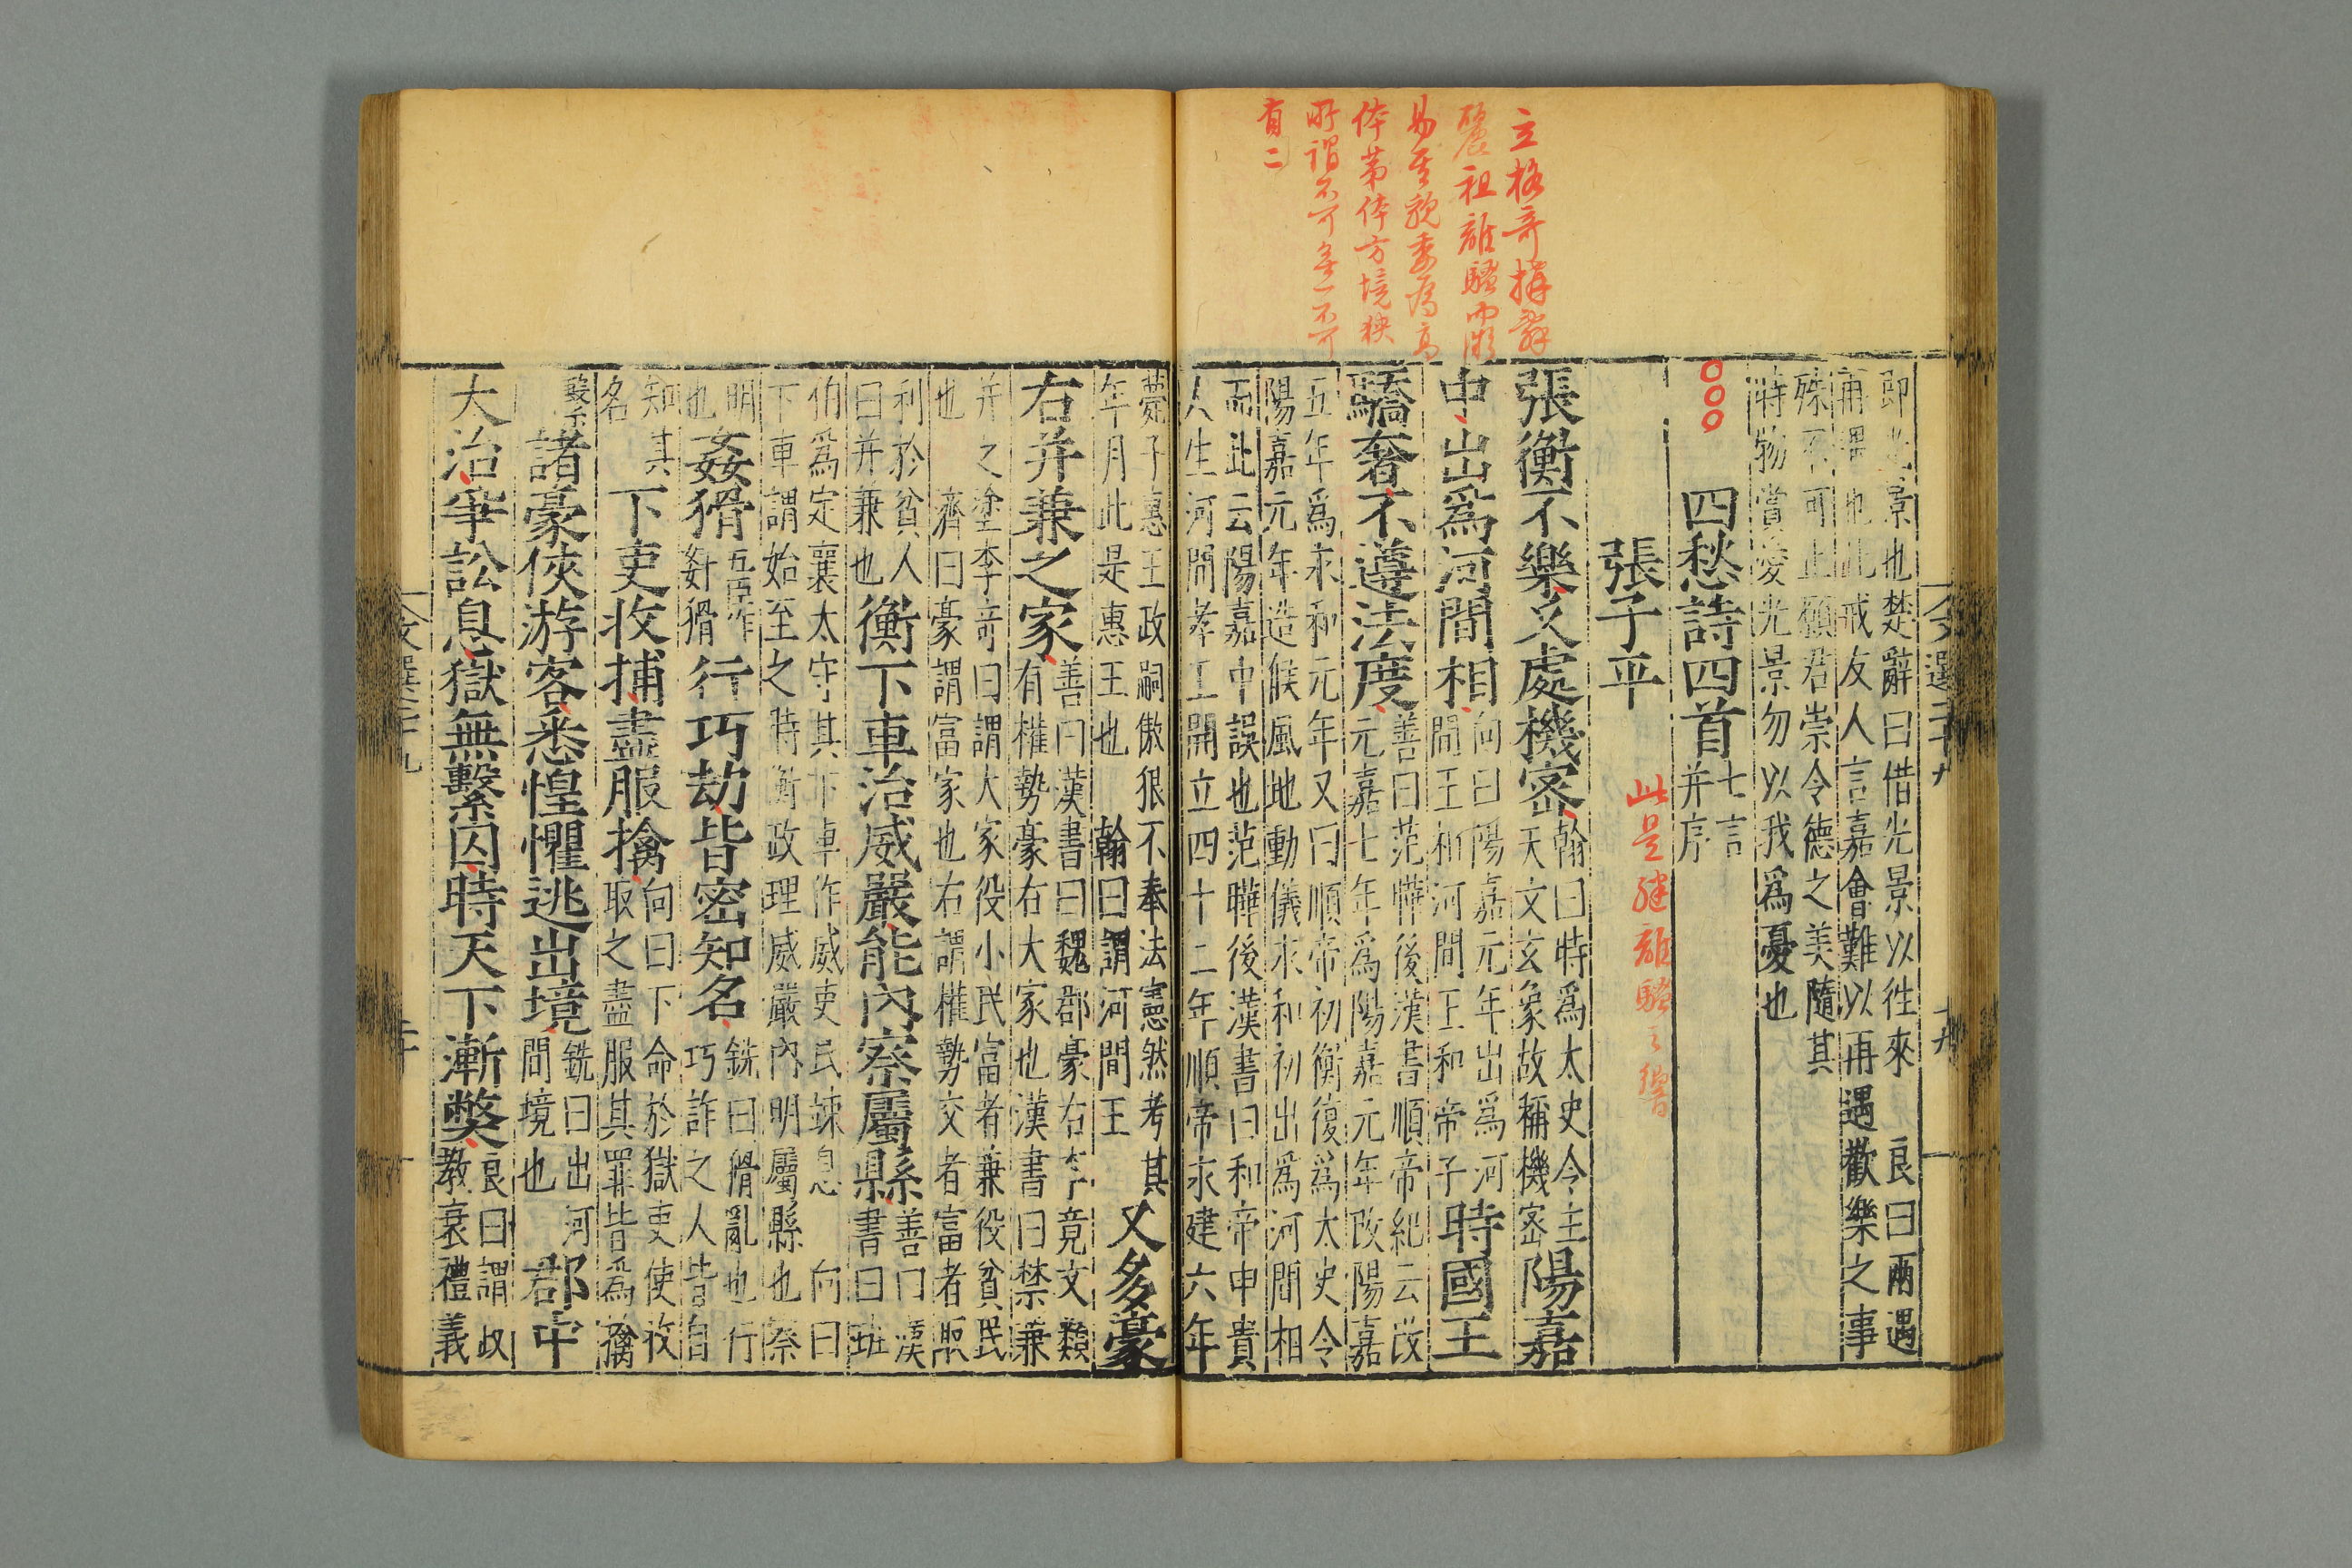 立格奇搆辭
麗祖離騷而
易其貌
体第体方境狹
所謂不可無一不可
有二
此是繼離騷之響
即光景也楚辭曰借光景以往來 良曰兩遇
再遇也此戒友人言嘉會難以再遇歡樂之事
殊不可止願君崇令德之美隨其
時物賞愛光景勿以我爲憂也
四愁詩四首 七言
并序
張子平
張衡不樂久處機密 翰曰時爲太史令主
天文玄象故稱機密 陽嘉
中出爲河間相 向曰陽嘉元年出爲河
間王和河間王和帝子 時國王
驕奢不遵法度 善曰范曄後漢書順帝紀云改
元嘉七年爲陽嘉元年改陽嘉
五年爲永和元年又曰順帝初衡復爲太史令
陽嘉元年造候風地動儀永和初出爲河間相
而此云陽嘉中誤也范曄後漢書曰和帝申貴
人生河間孝王開立四十二年順帝永建六年
薨子惠王政嗣傲狠不奉法憲然考其
年月此是惠王也 翰曰謂河間王 又多豪
右并兼之家 善曰漢書曰魏郡豪右李竟文類
有權勢豪右大家也漢書曰禁兼
并之塗李奇曰謂大家役小民富者兼役貧民
也 濟曰豪謂富家也右謂權勢交者富者取
利於貧人
曰并兼也 衡下車治威嚴能內察屬縣 善曰漢
書曰班
伯爲定襄太守其下車作威吏民竦息 向曰
下車謂始至之時衡政理威嚴內明屬縣也察
明
也 姦猾 五臣作
姧猾 行巧劫皆密知名 銑曰猾亂也行
巧詐之人皆自
知其
名 下吏收捕盡服擒 向曰下命於獄吏使收
取之盡服其罪皆爲擒
繫 諸豪俠游客悉惶懼逃出境 銑曰出河
間境也 郡中
大治爭訟息獄無繫囚時天下漸獘 良曰謂政
教衰禮義